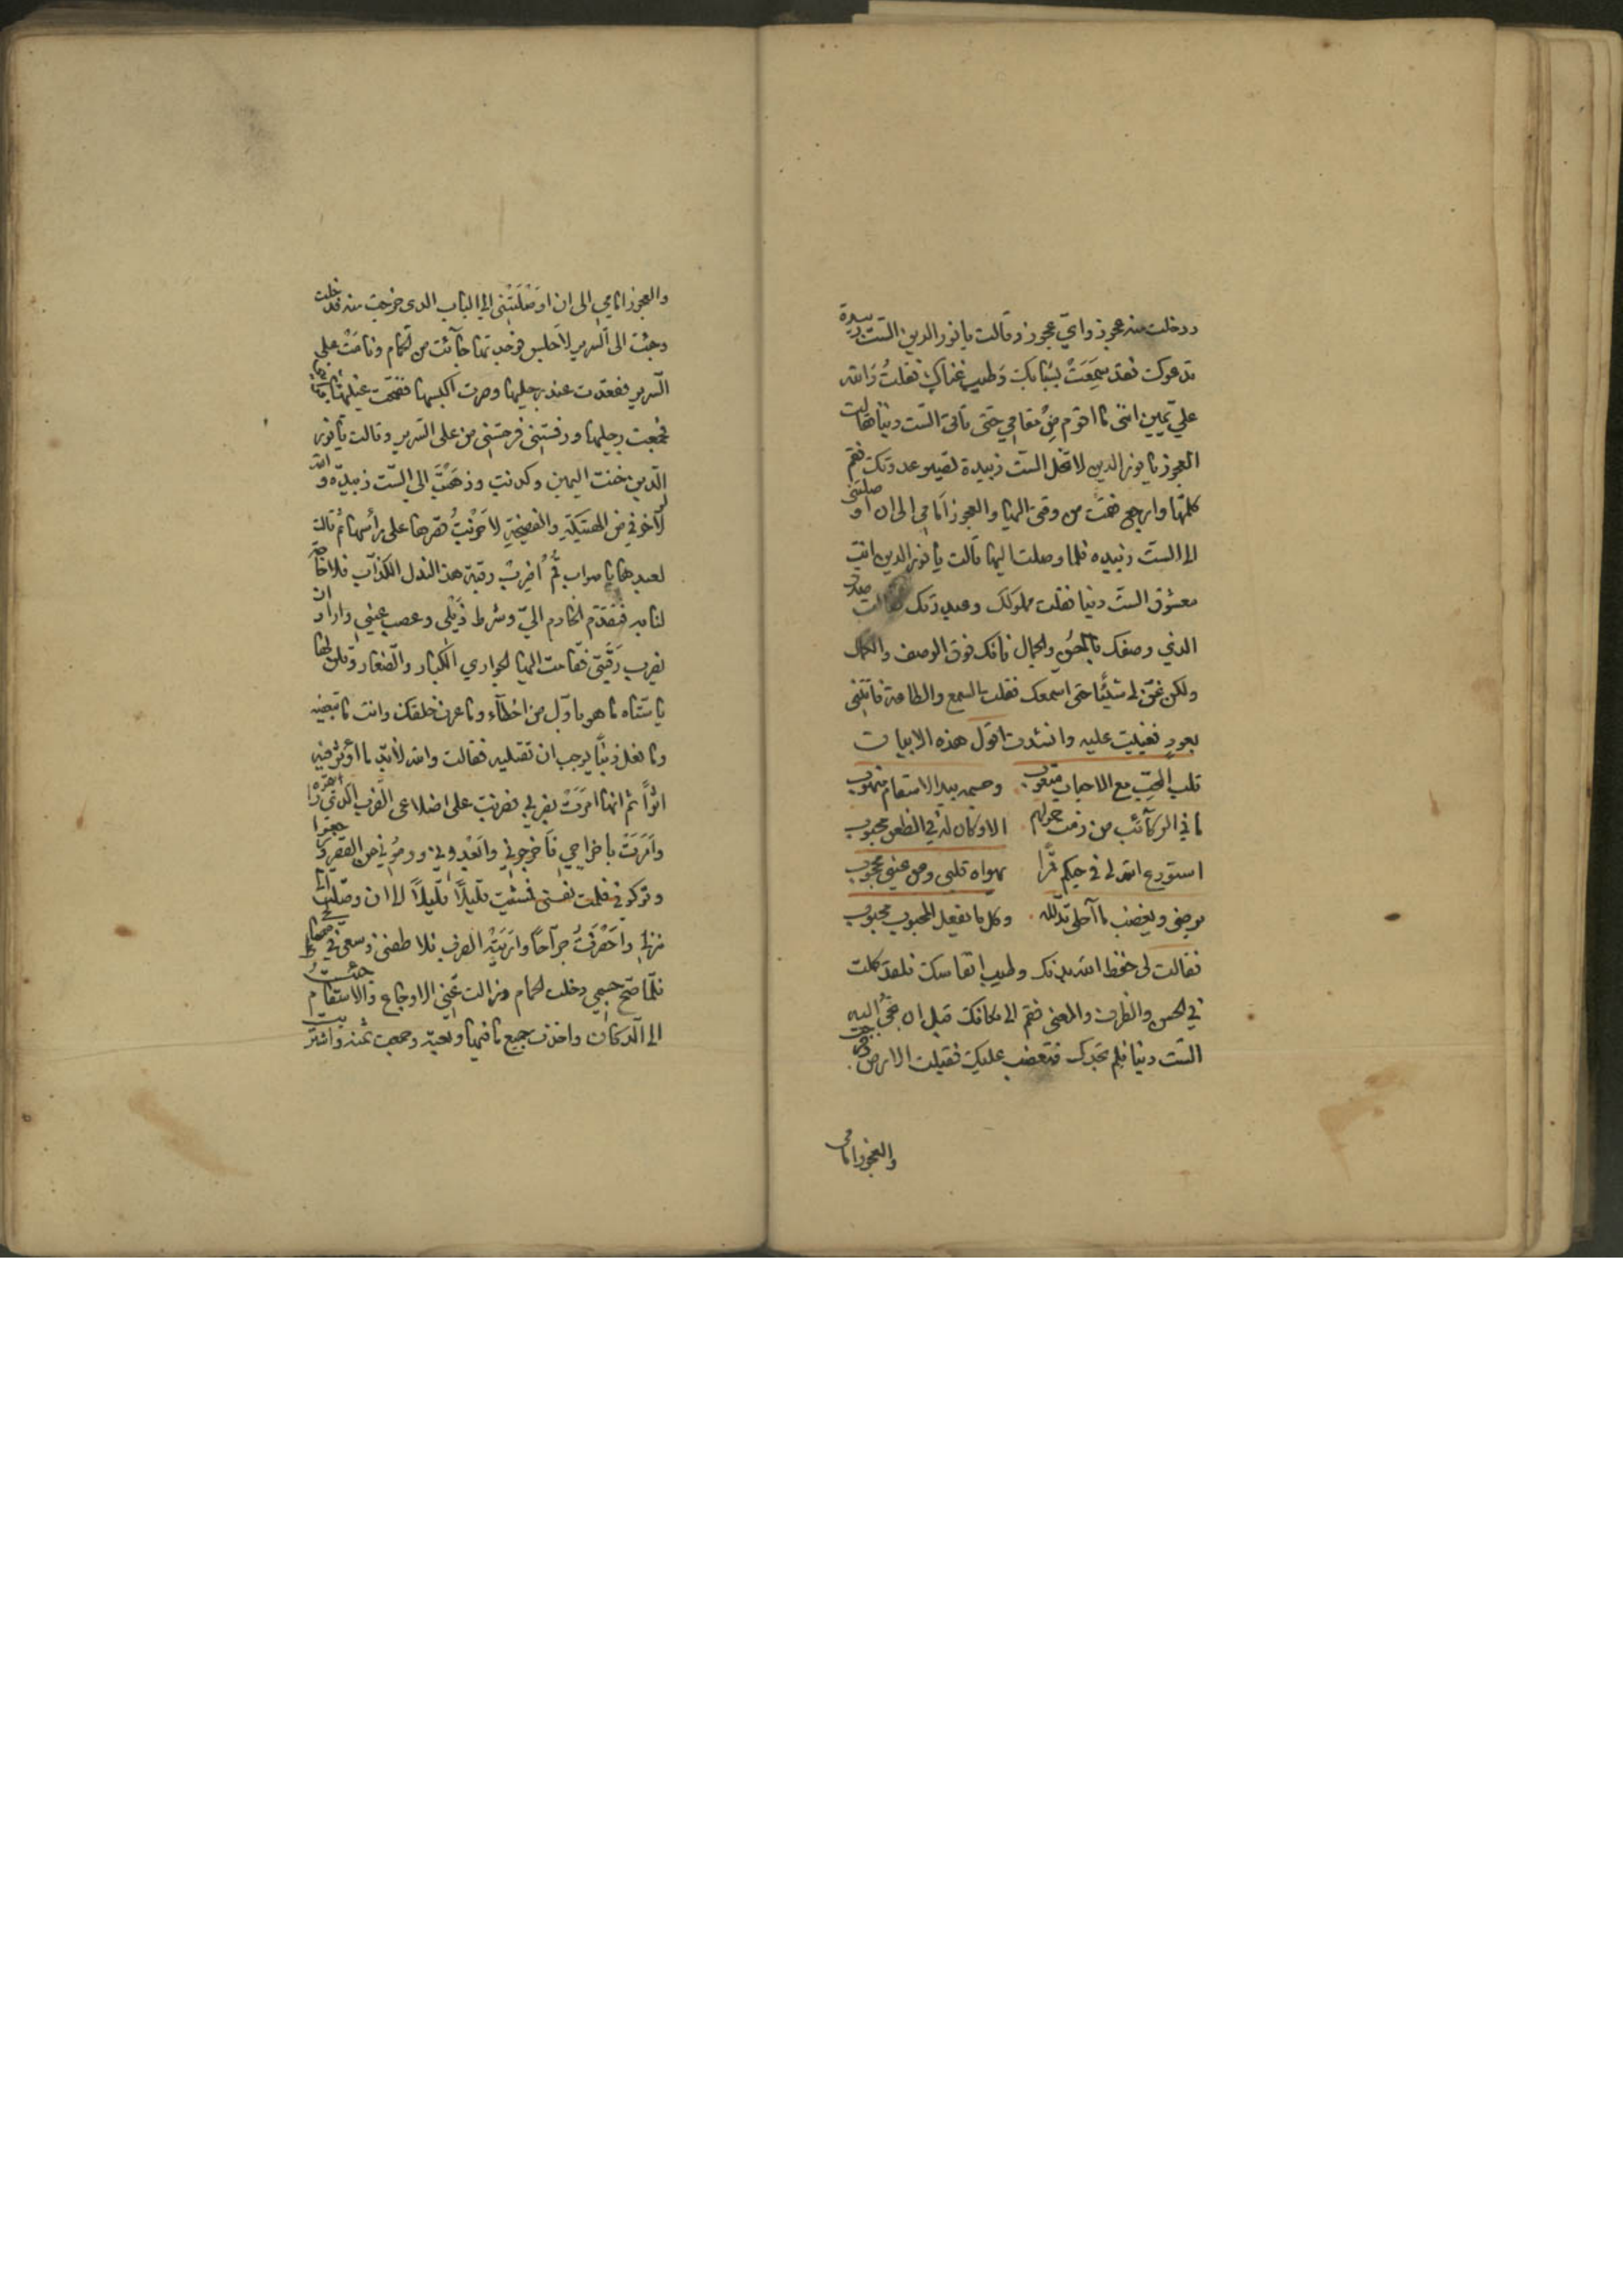 ودخلت منه عجوز واي عجوز وقالت يا نور الدين الست زبيدة
تدعوك فقد سمعت بشبابك وطيب غناك فقلت والله
علي يمين انني ما اقوم من مقامي حتى تاتي الست دنيا قالت
العجوز يا نور الدين لا تخل الست زبيدة تصير عدوتك فقم
كلمها وارجع فقمت من وقتي اليها والعجوز امامي الى ان اوصلتني
الى الست زبيده فلما وصلت اليها قالت يا نور الدين انت
معشوق الست دنيا فقلت مملوكك وعبد رقك فقالت صدق
الذي وصفك بالحسن والجمال فانك فوق الوصف والكمال
ولكن غن لي شيئا حتى اسمعك فقلت بالسمع والطاعة فاتتني
بعود فغنيت عليه وانشدت اقول هذه الابيات
قلب المحب مع الاحباب متعوب وجسمه بيد الاسقام منهوب
ما في الركائب من زمت حمولهم الا وكان له في الظعن محبوب
استودع الله لي في حيكم قمرا يهواه قلبي وعن عيني محجوب
يرضى ويغضب ما احلى تدلله وكل ما يفعل المحبوب محبوب
فقالت لي حفظ الله بدنك وطيب انفاسك فلقد كملت
في الحسن والظرف والمعنى فقم الى مكانك قبل ان تجئ اليه
الست دنيا فلم تجدك فتغضب عليك فقبلت الارض وخرجت
والعجوز امامي
والعجوز امامي الى ان اوصلتني الى الباب الدى خرجت منه فدخلت
وجئت الى السرير لاجلس فوجدتها جآئت من الحمام ونامت على
السرير فقعدت عند رجليها وصرت اكبسها ففتحت عينيها
فجمعت رجليها ورفستني فرمتني من على السرير وقالت يا نور
الدين خنت اليمين وكدبت وذهبت الى الست زبيده والله
لولا خوفي من الهتيكة والفضيحة لاخربت قصرها على رأسها ثم قالت
لعبدها يا صواب قم اضرب رقبة هذا النذل الكذاب فلا حاجة
لنا به فتقدم الخادم الي وشرط ذيلي وعصب عيني واراد ان
يضرب رقبتي فقامت اليها الجواري الكبار والصغار وقلن لها
يا ستاه ما هو باول من اخطآء وما عرف خلقك وانت ما تبغضيه
وما فعل ذنبا يوجب ان تقتليه فقالت والله لابد ما أوثر فيه
اثرا ثم انها امرت بضربي فضربت على اضلاعي الضرب الذي
وأمرت باخراجي فاخرجوني وابعدوني ورموني من القصر
وتركوني فلمت نفسي فمشيت قليلا قليلا الى ان وصلت الى
منزلي واحضرت جراحا واريته الضرب فلاطفني وسعى في
فلما صح جسمي دخلت الحمام وزالت عني الاوجاع والاسقام جئت
الى الدكان واخذت جميع ما فيها وبعته وجمعت ثمنه واشتريت